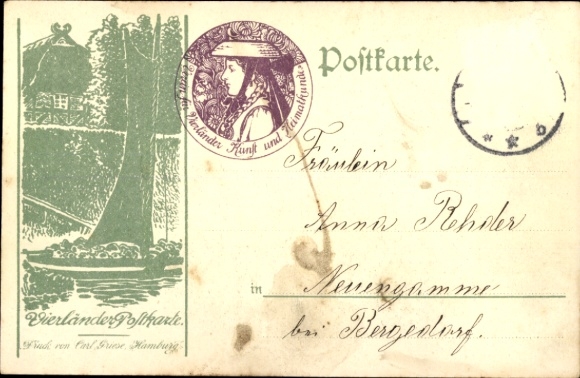 Verein für Vierländer Kunst und Heimatkunde
Postkarte.
b
Fräulein
Anna Rehder
in Neuengamme
bei Bergedorf.
Vierländer Postkarte.
Druck von Carl Griese, Hamburg.